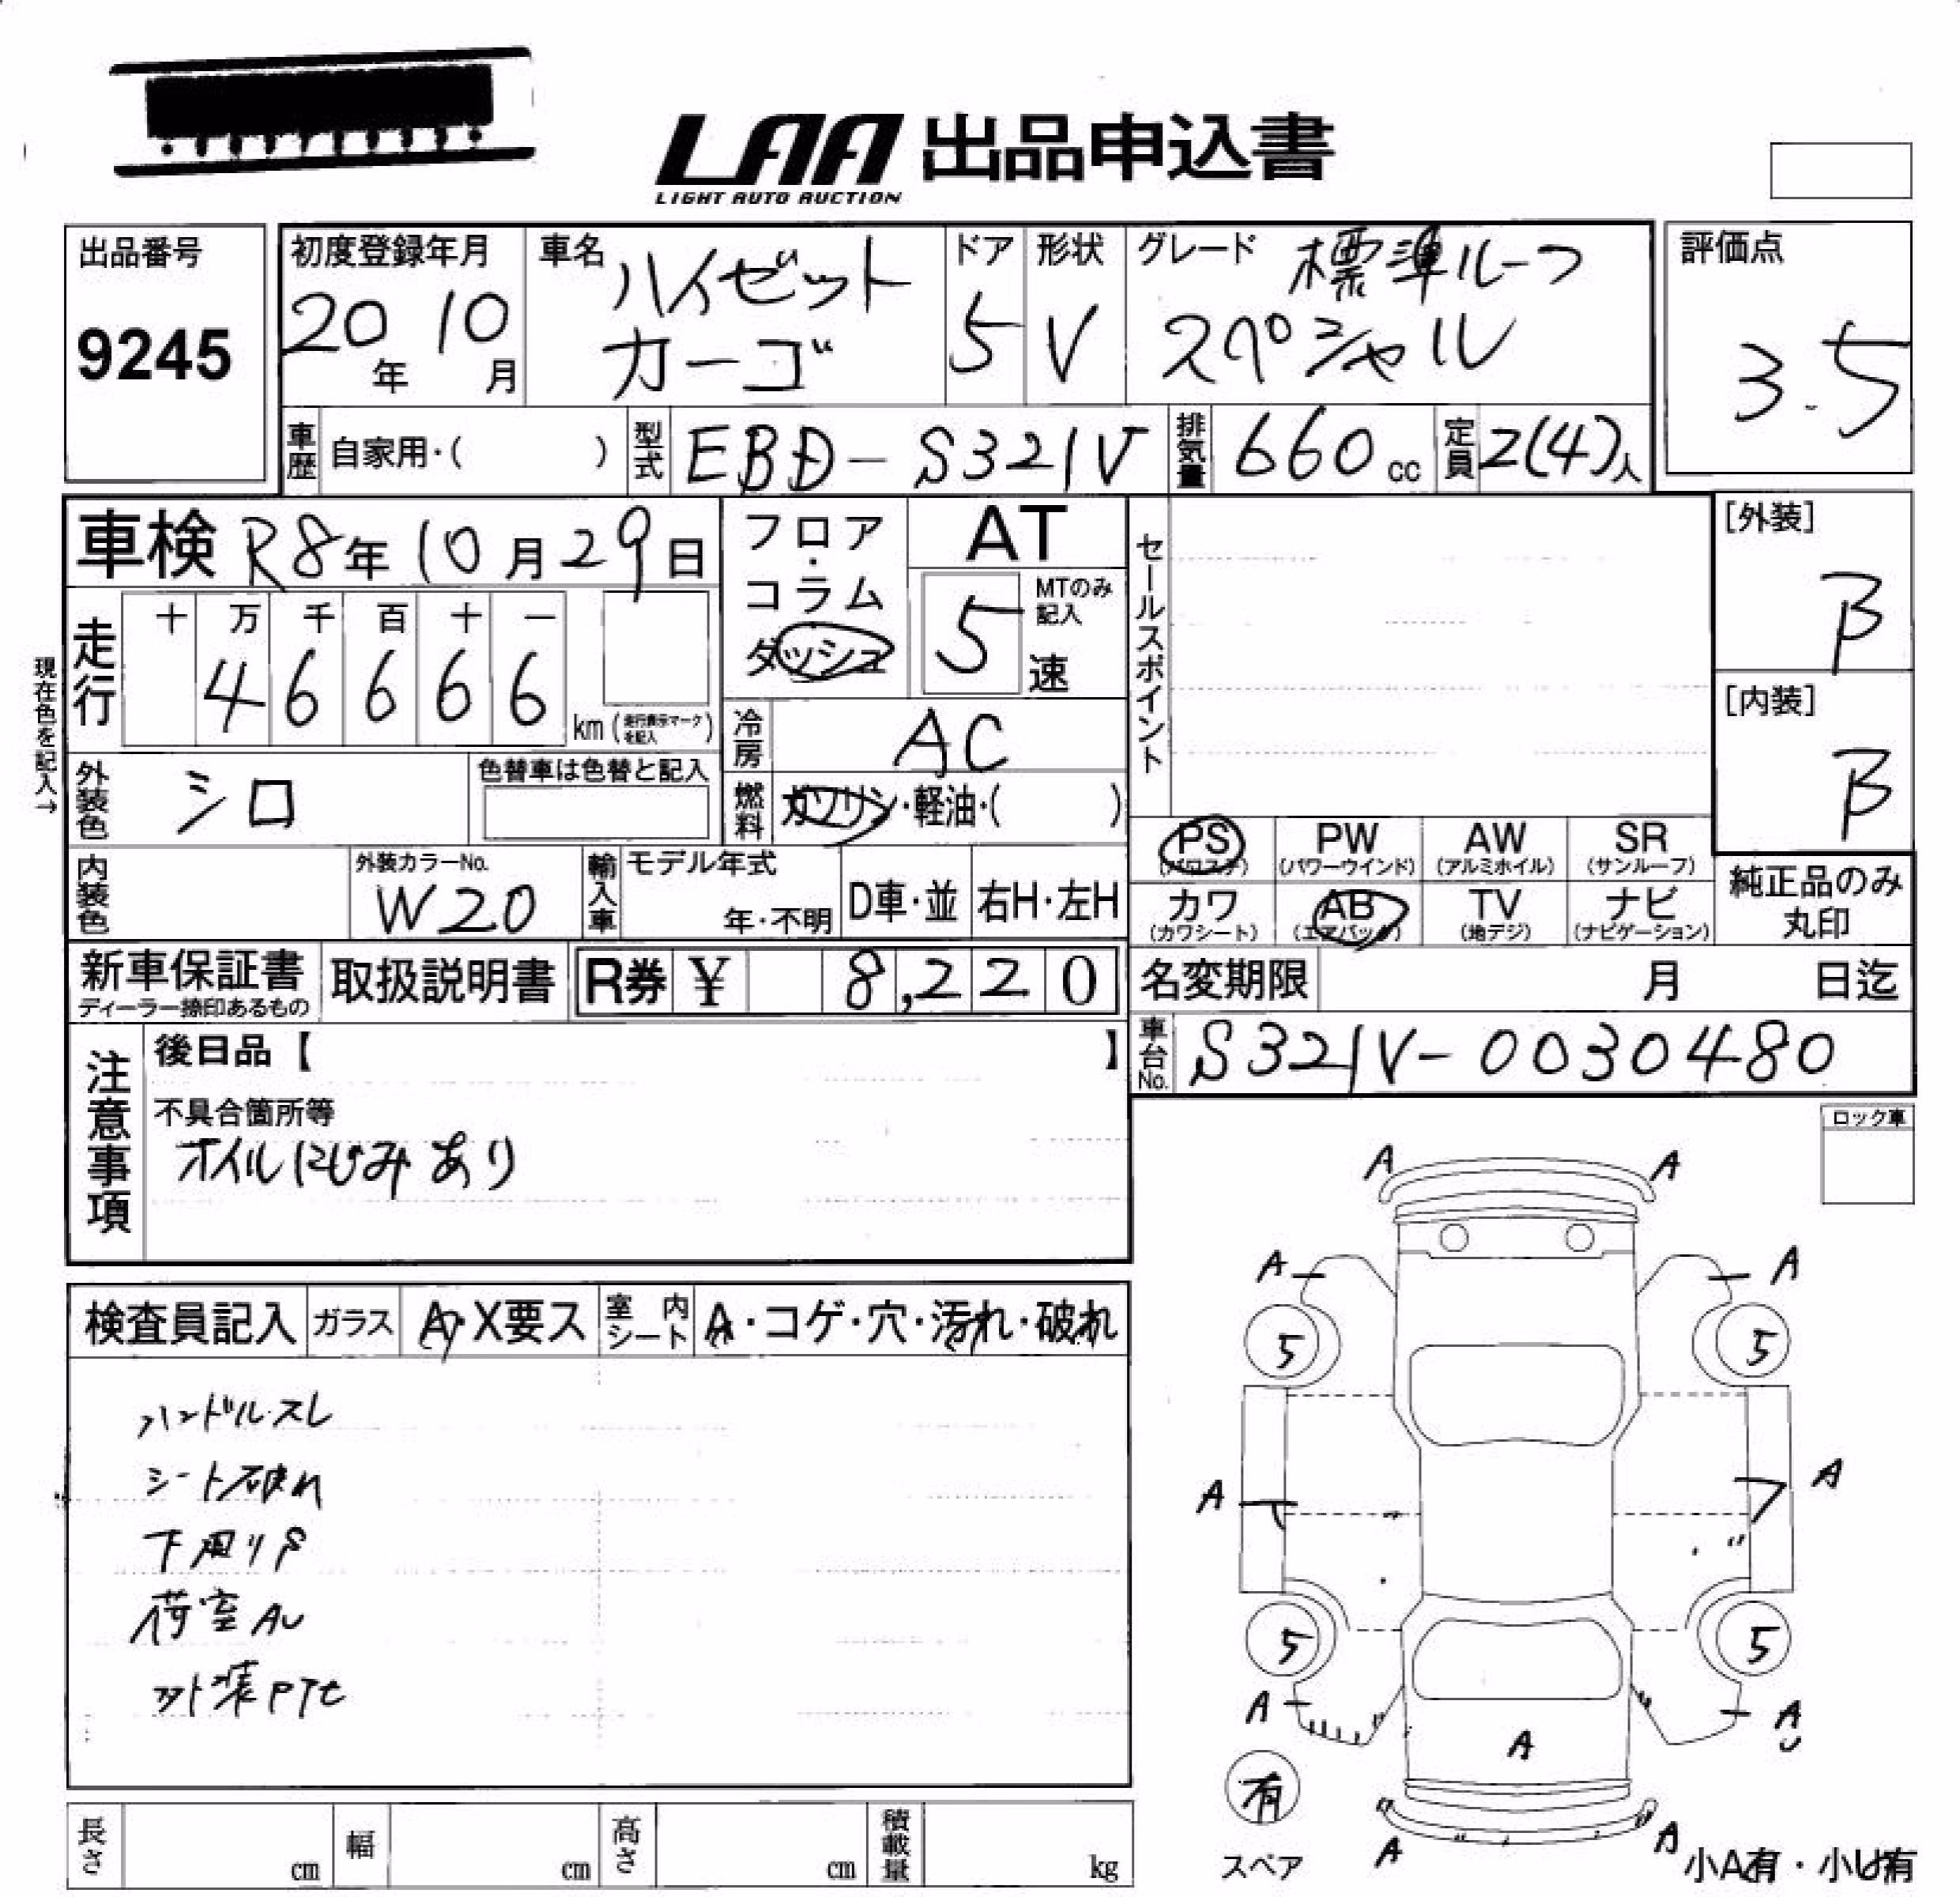 LAA 出品申込書
LIGHT AUTO AUCTION
出品番号
9245
初度登録年月
20年 10月
車名
ハイゼット
カーゴ
ドア
5
形状
V
グレード 標準ルーフ
スペシャル
評価点
3.5
車歴 自家用・( )
型式 EBD-S321V
排気量 660 cc
定員 2(4)人
車検 R8年 10月29日
走行
十 万 千 百 十 一
4 6 6 6 6
km (走行表示マークを記入)
現在色を記入→
フロア・
コラム
ダッシュ
AT
5 速
MTのみ記入
冷房 AC
燃料 ガソリン・軽油・( )
セールスポイント
[外装]
B
[内装]
B
外装色 シロ
色替車は色替と記入
内装色
外装カラーNo.
W20
輸入車
モデル年式
年・不明
D車・並
右H・左H
PS
(パワステ)
PW
(パワーウインド)
AW
(アルミホイル)
SR
(サンルーフ)
カワ
(カワシート)
AB
(エアバック)
TV
(地デジ)
ナビ
(ナビゲーション)
純正品のみ
丸印
新車保証書
ディーラー捺印あるもの
取扱説明書
R券 ¥ 8,220
名変期限 月 日迄
車台No. S321V-0030480
注意事項
後日品【 】
不具合箇所等
オイルにじみあり
ロック車
検査員記入
ガラス A・X要ス
室内シート A・コゲ・穴・汚れ・破れ
ハンドルスレ
シート破れ
下廻りS
荷室AU
外装PTセ
A A
A A
5 5
A A
5 5
A AU
A
有
スペア
A A
小A有・小U有
長さ cm
幅 cm
高さ cm
積載量 kg